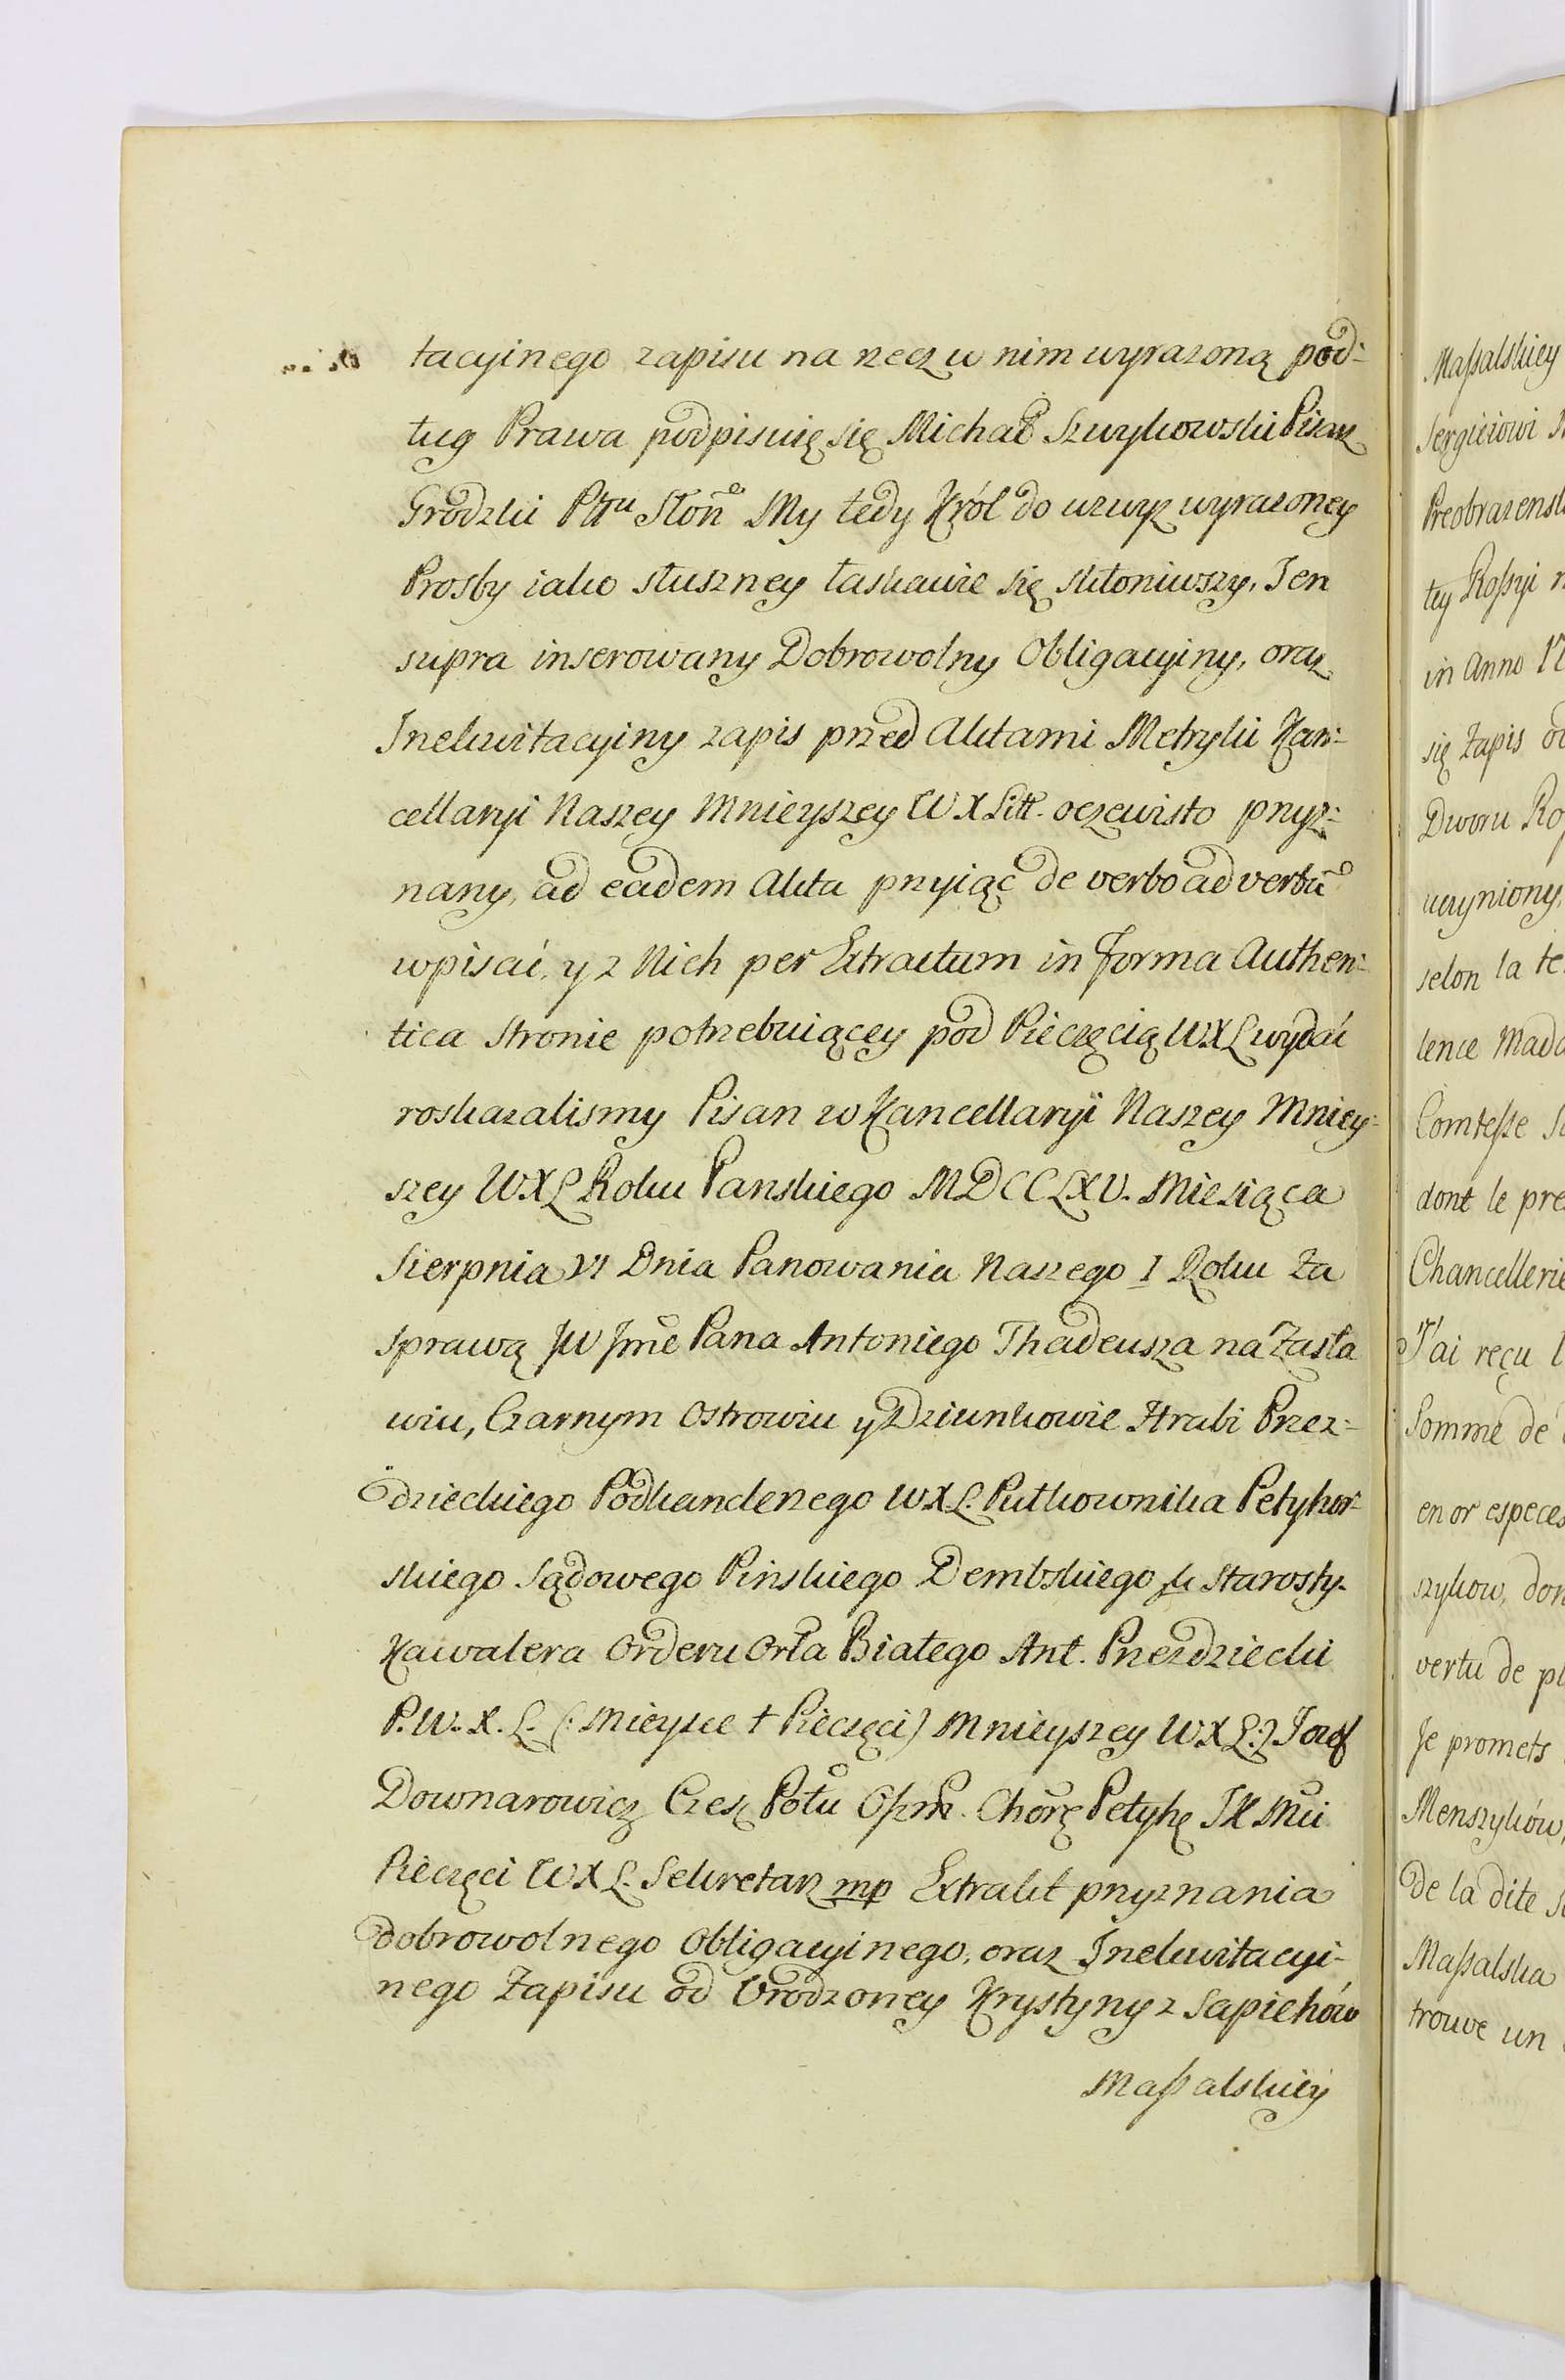 tacyinego zapisu na rzecz w nim wyrazoną pod:
ług Prawa podpisuię się Michał Szwykowski Pisarz
Grodzki Pttu Słoń My tedy Król do uzwyz wyrazoney
Prosby iako słuszney łaskawie się skłoniwszy, Ten
supra inserowany Dobrowolny Obligacyiny, oraz
Inekwitacyiny zapis przed Aktami Metryki Kan:
cellaryi Naszey Mnieyszey W X Litt. oczewisto przyz:
nany, ad eadem Akta przyiąć de verbo ad verbū
wpisać, y z Nich per Extractum in forma Authen:
tica Stronie potrzebuiącey pod Pieczęcią WXL wydać
roskazalismy Pisan w Kancellaryi Naszey Mniey:
szey WXL Roku Panskiego MDCCLXV. Miesiąca
Sierpnia VI Dnia Panowania Naszego I Roku Za
sprawą JW Jme Pana Antoniego Thadeusza na Zasła
wiu, Czarnym Ostrowiu y Dziunkowie Hrabi Przez:
dzieckiego Podkanclerzego WXL. Pułkownika Petyhor:
skiego Sądowego Pinskiego Dembskiego Starosty.
Kawalera Orderu Orła Białego Ant. Przezdziecki
P. W. X. L. (: Mieysce † Pieczęci) Mnieyszey WXL:) Jozef
Downarowicz Czesz Pottu Oszm. Chorą Petyhę JK Mci
Pieczęci WXL. Sekretarz mp Extrakt przyznania
dobrowolnego Obligacyinego, oraz Inekwitacyi-
nego Zapisu od Urodzoney Krystyny z Sapiehów
Massalskiey
Massalskiey
Sergieiowi
tey Rossyi
in Anno
się Zapis
Dworu
uczyniony,
selon la
lence
Comtesse
dont le
Chancellerie
J'ai reçu
Somme de
en or especes
szykow,
vertu de
Je promets
Menszyków,
De la dite
Massalska
trouve un